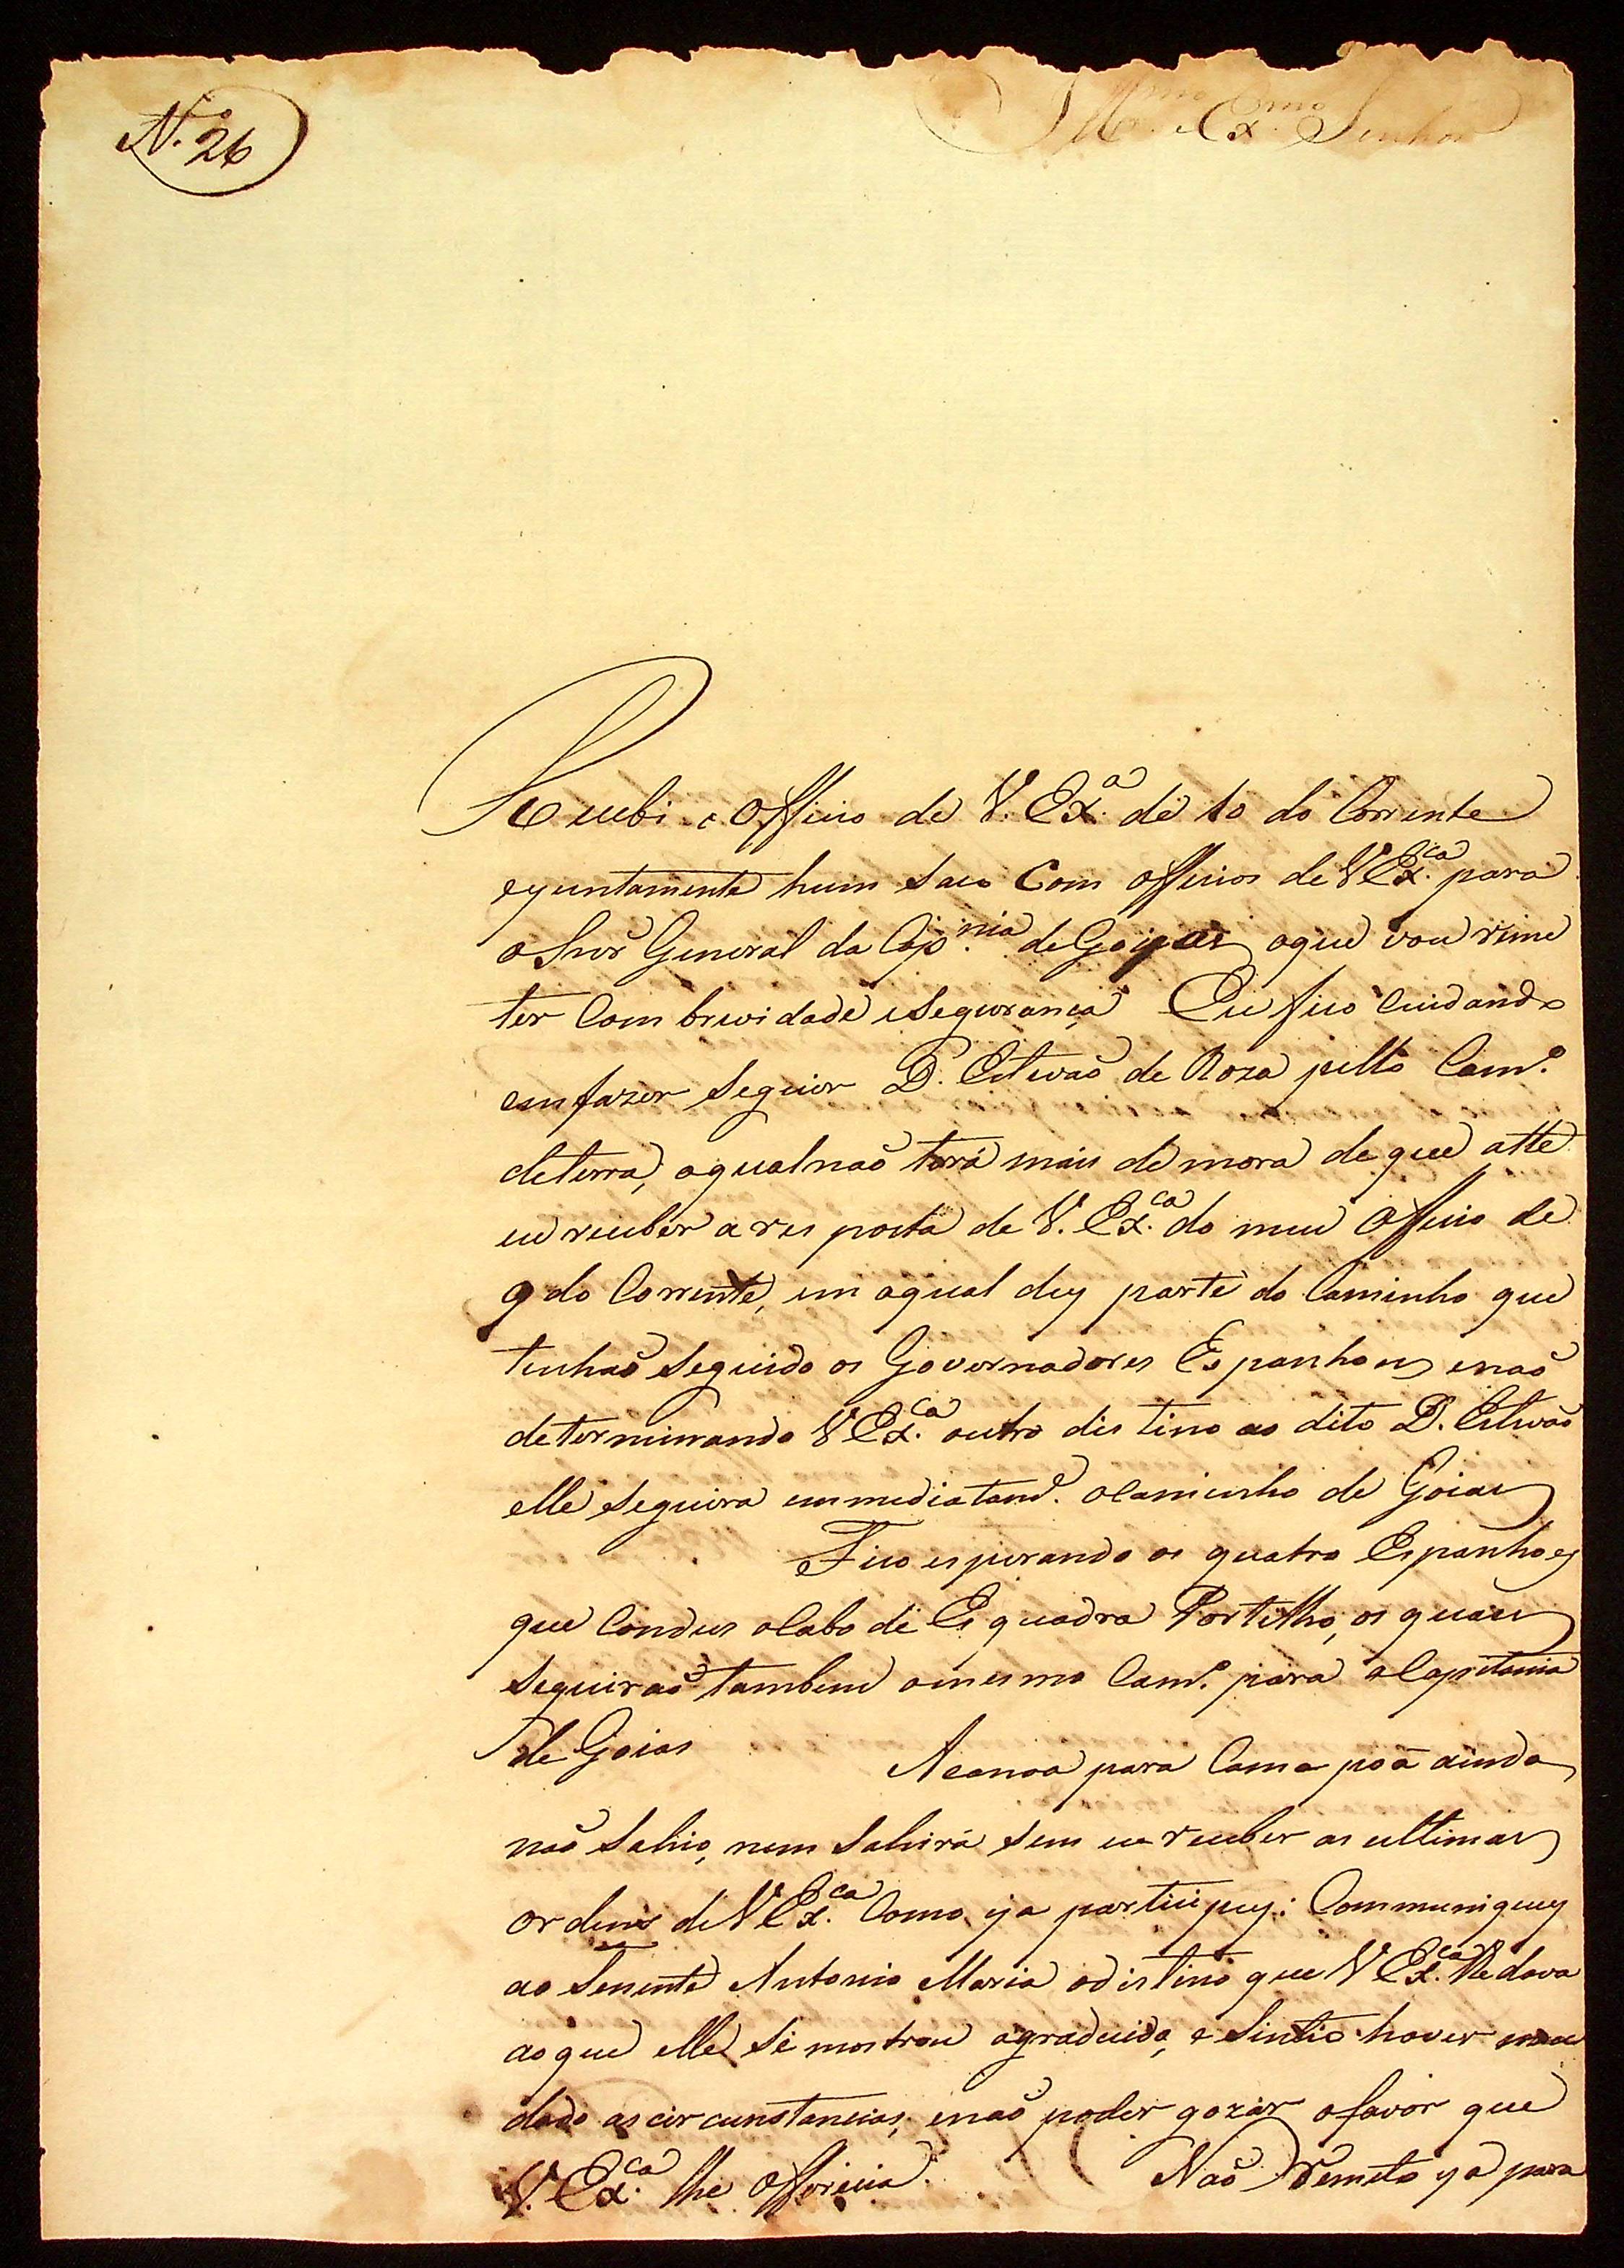 N.º 26
Ill.mo Ex.mo Senhor
Recebi o Officio de V. Ex.ª de 10 do Corrente
ejuntamente hum saco Com officios de V Ex.ca para
o Snõr General da Cap.nia de Goyas oque vou reme
ter Com brevidade eSegurança Eu fico Cuidando
em fazer Seguir D. Estevaõ de Roza pello Cam.º
deterra, oqual naõ terá mais demora do que atte
eu receber a res posta de V. Ex.ca do meu officio de
9 do Corrente, em oqual dey parte do Caminho que
tinhaõ Seguido os Governadores Espanhoes enaõ
determinando V Ex.ca outro distino ao dito D. Estevaõ
elle Seguira emmediatam.e oCaminho de Goias
Fico esperando os quatro Espanhoes
que Condus oCabo de Esquadra Portilho, os quaes
Seguiraõ tambem omesmo Cam.º para aCapitania
de Goias Acanoa para Cama poã ainda
naõ Sahio, nem Sahirá sem eu receber as ultimas
ordens de V Ex.ca Como ja participey: Communiquey
ao Tenente Antonio Maria odistino que V Ex.ca lhe dava
aoque elle Se mostrou agradecido, e Sintio haver mu
dado as circunstancias, enaõ poder gozar ofavor que
V. Ex.ca lhe offerecia. Naõ Remeto ja para